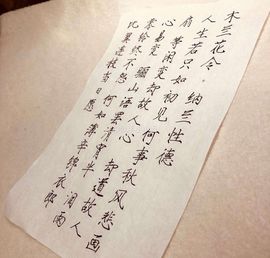 木兰花令·纳兰性德
人生若只如初见何事秋风悲画
扇等闲变却故人心却道故人
心易变骊山语罢清宵半泪雨
零铃终不怨何如薄幸锦衣郎
比翼连枝当日愿